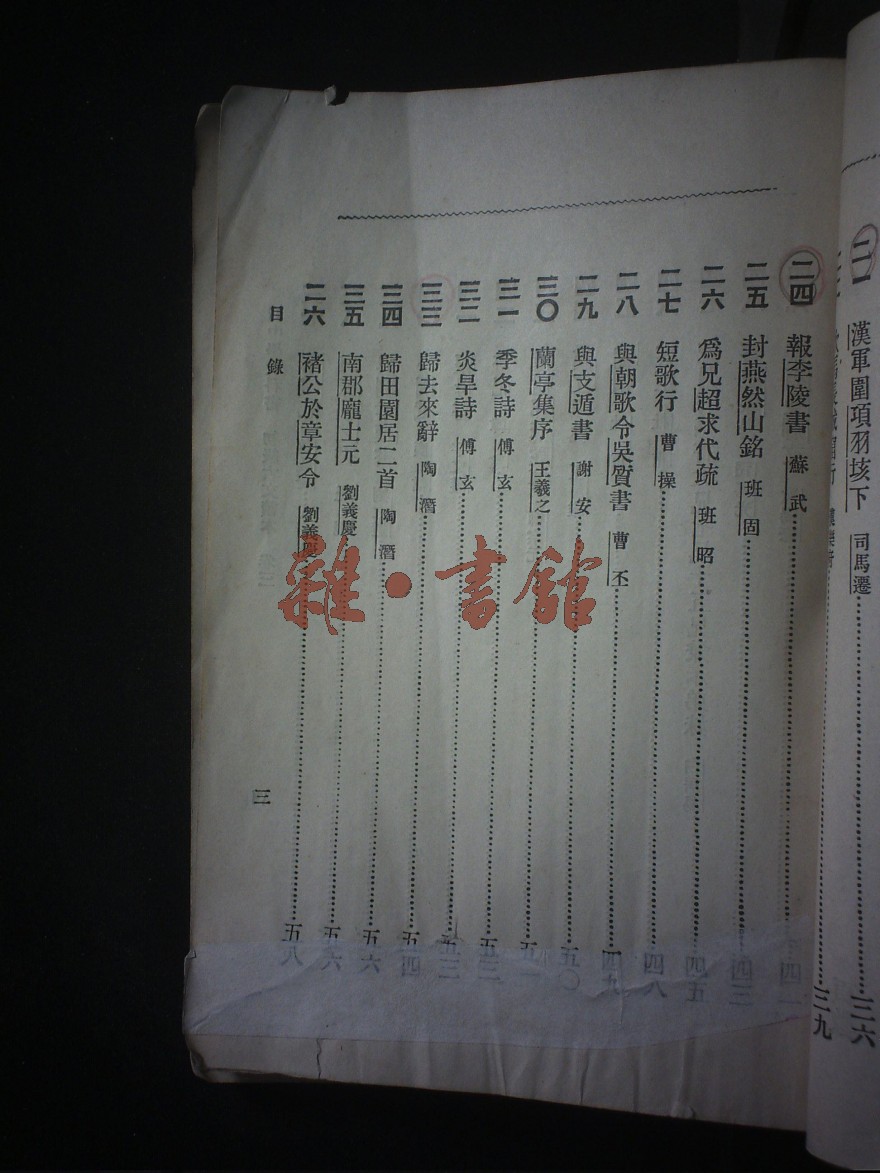 二一 漢軍圍項羽垓下 司馬遷 三六
三九
二四 報李陵書 蘇武 四一
二五 封燕然山銘 班固 四三
二六 爲兄超求代疏 班昭 四五
二七 短歌行 曹操 四八
二八 與朝歌令吳質書 曹丕 四九
二九 與支遁書 謝安 五〇
三〇 蘭亭集序 王羲之 五一
三一 季冬詩 傅玄 五二
三二 炎旱詩 傅玄 五三
三三 歸去來辭 陶潛 五四
三四 歸田園居二首 陶潛 五六
三五 南郡龐士元 劉義慶 五六
二六 褚公於章安令 劉義慶 五八
目錄
三
雜·書館